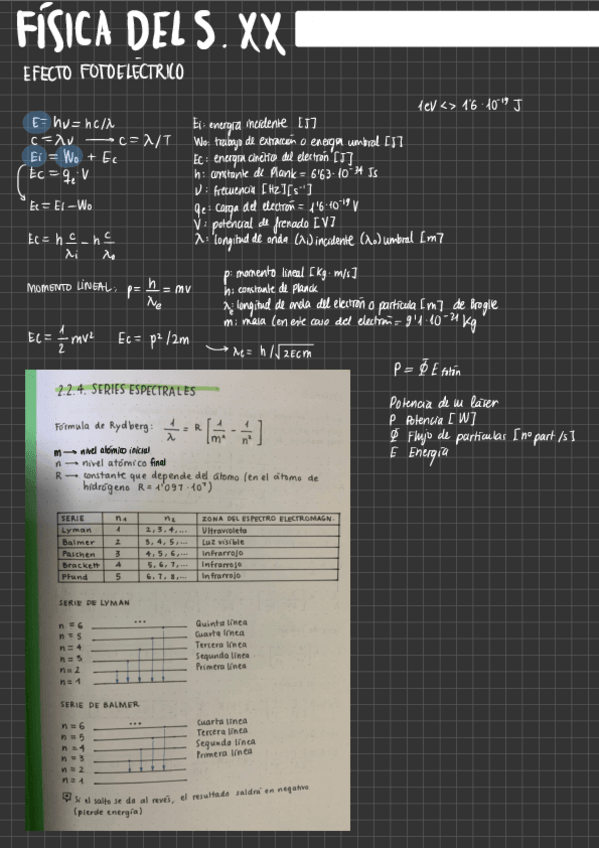 FÍSICA DEL S. XX
EFECTO FOTOELÉCTRICO
1eV <> 1'6 · 10⁻¹⁹ J
E = hν = hc/λ
c = λν → c = λ/T
Ei = Wo + Ec
Ec = qe · V
Ec = Ei - Wo
Ec = h c/λi - h c/λo
Ei: energía incidente [J]
Wo: trabajo de extracción o energía umbral [J]
Ec: energía cinética del electrón [J]
h: constante de Plank = 6'63 · 10⁻³⁴ Js
ν: frecuencia [Hz][s⁻¹]
qe: carga del electrón = 1'6 · 10⁻¹⁹ V
V: potencial de frenado [V]
λ: longitud de onda (λi) incidente (λo) umbral [m]
MOMENTO LÍNEAL: p = h/λe = mv
p: momento lineal [Kg · m/s]
h: constante de Planck
λe: longitud de onda del electrón o partícula [m] de Broglie
m: masa (en este caso del electrón = 9'1 · 10⁻³¹ Kg
Ec = 1/2 mv² Ec = p²/2m
→ λe = h/√2Ecm
P = Φ E fotón
Potencia de un láser
P Potencia [W]
Φ Flujo de partículas [nº part/s]
E Energía
2.2.4. SERIES ESPECTRALES
Fórmula de Rydberg: 1/λ = R [1/m² - 1/n²]
m → nivel atómico inicial
n → nivel atómico final
R → constante que depende del átomo (en el átomo de
hidrógeno R = 1'097 · 10⁷)
SERIE n₁ n₂ ZONA DEL ESPECTRO ELECTROMAGN.
Lyman 1 2, 3, 4,... Ultravioleta
Balmer 2 3, 4, 5,... Luz visible
Paschen 3 4, 5, 6,... Infrarrojo
Brackett 4 5, 6, 7,... Infrarrojo
Pfund 5 6, 7, 8,... Infrarrojo
SERIE DE LYMAN
n = 6 ... Quinta línea
n = 5 Cuarta línea
n = 4 Tercera línea
n = 3 Segunda línea
n = 2 Primera línea
n = 1
SERIE DE BALMER
n = 6 ... Cuarta línea
n = 5 Tercera línea
n = 4 Segunda línea
n = 3 Primera línea
n = 2
n = 1
Si el salto se da al revés, el resultado saldrá en negativo
(pierde energía)